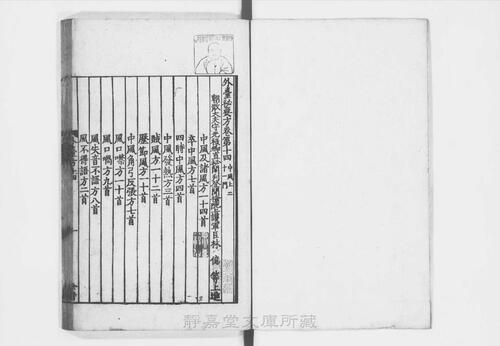 外臺祕要方卷第十四
朝散大夫守光祿卿直祕閣判登聞檢院上護軍臣林 億 等上進
中風及諸風方一十四首
卒中風方七首
四時中風方四首
中風發熱方三首
賊風方一十二首
歷節風方一十首
中風角弓反張方七首
風口噤方一十首
風口喎方九首
風失音不語方八首
風不得語方二首
靜嘉堂文庫所藏